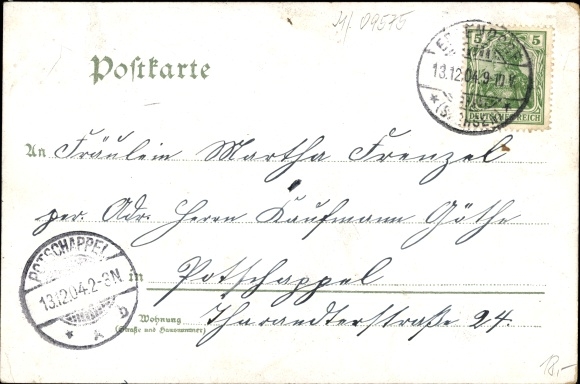 M/ 09575
Postkarte
5 5
DEUTSCHES REICH
13.12.04.9-10.V.
(SACHSEN)
An Fräulein Martha Frenzel
per. Adr. Herrn Kaufmann Göthe
in Potschappel
Wohnung
(Straße und Hausnummer)
Tharandterstraße 24.
POTSCHAPPEL
13.12.04.2-3N
b
18,-